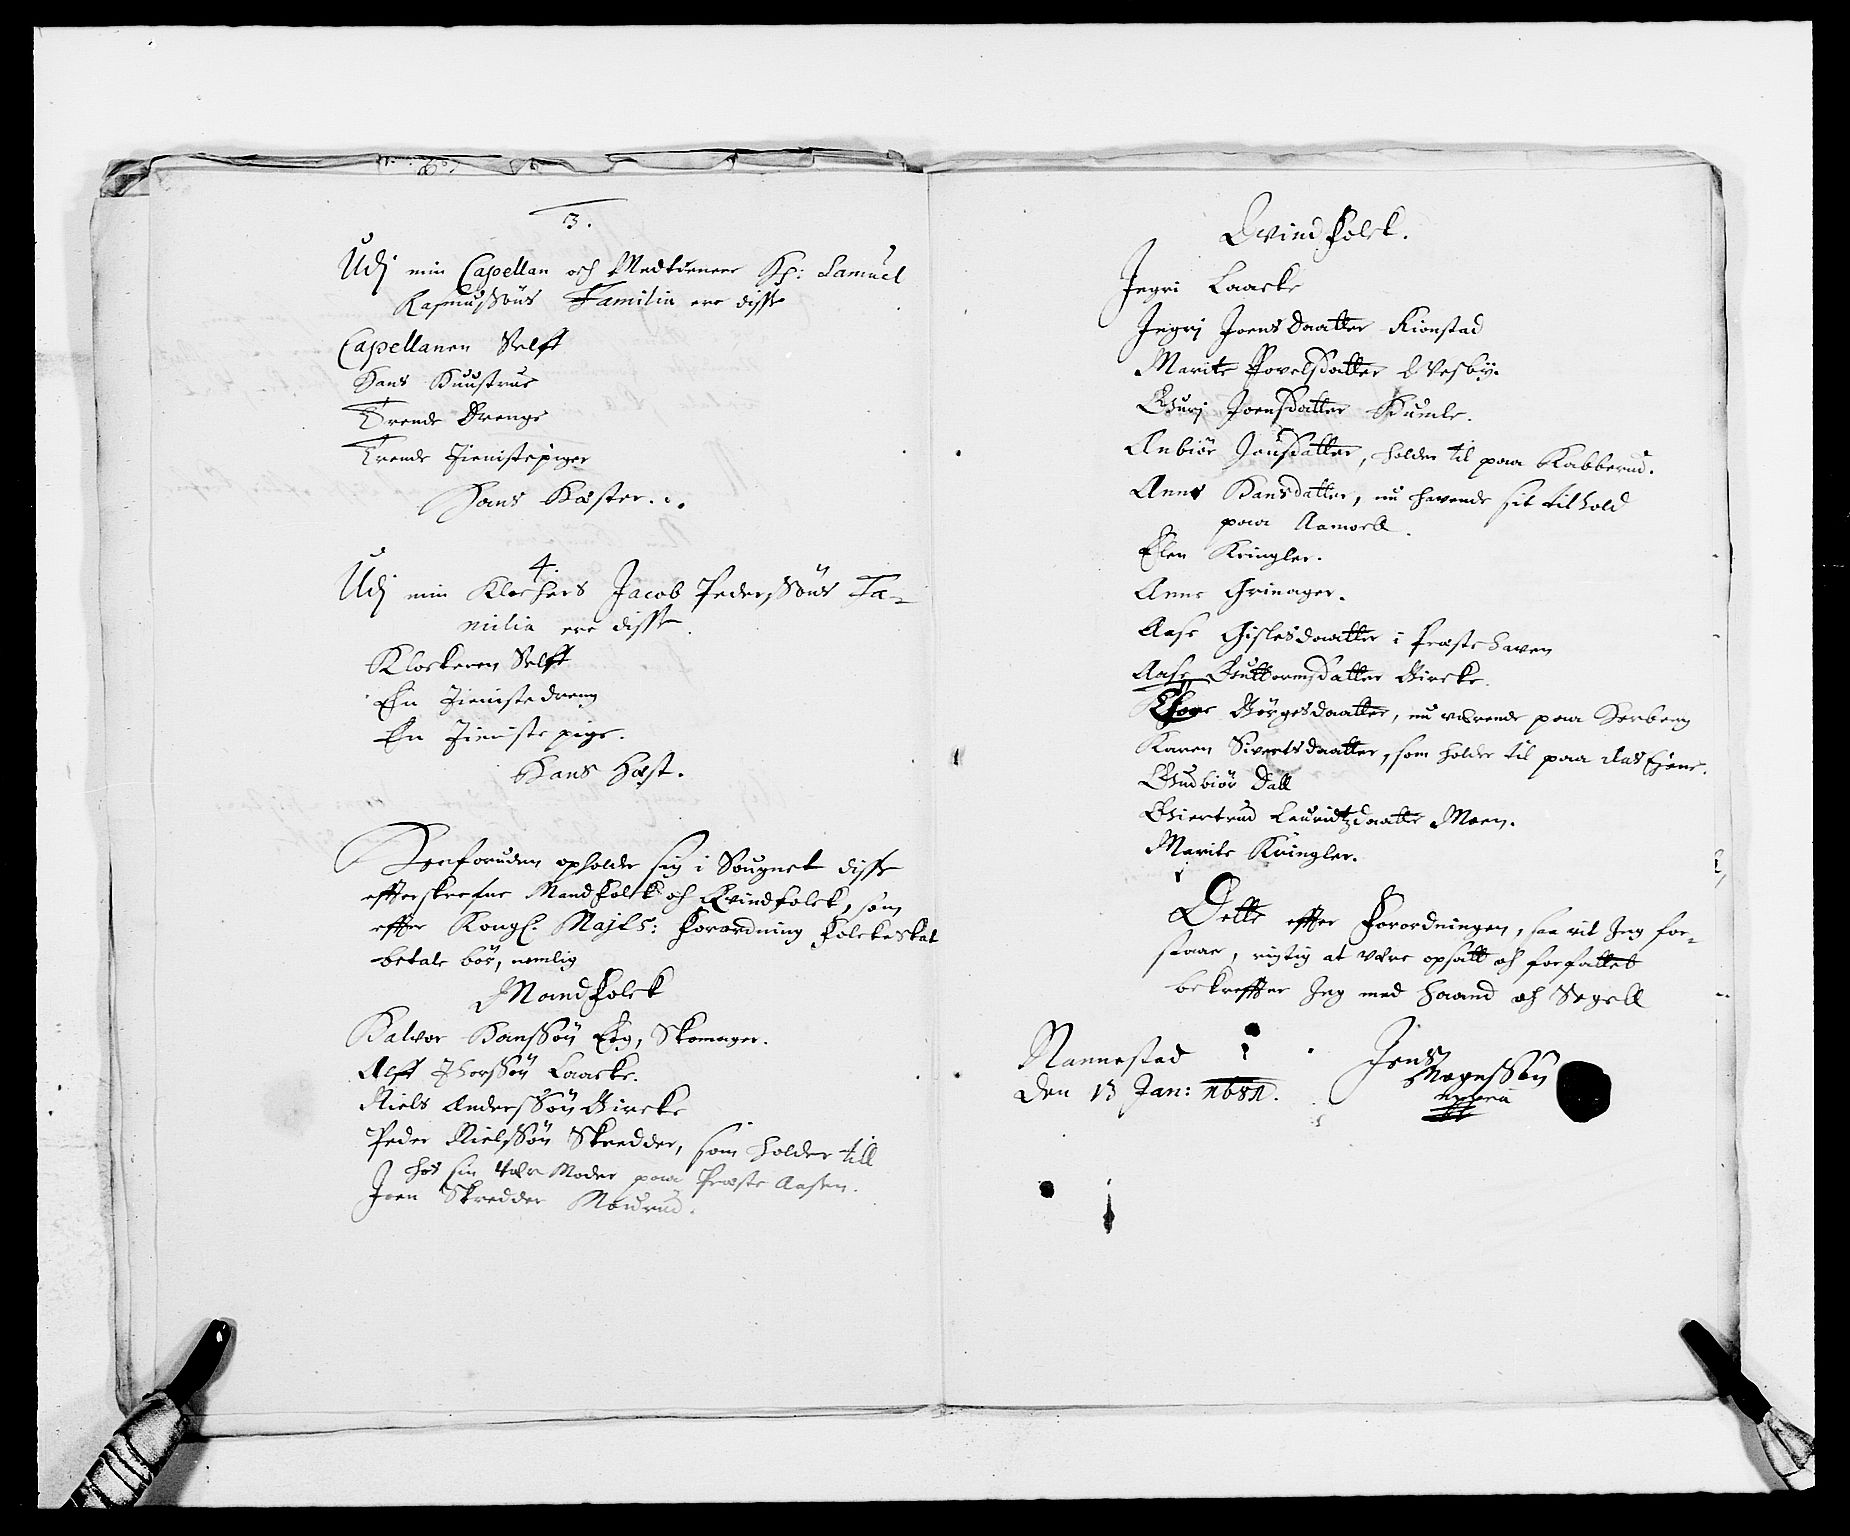 3.
Udj min Capellan och Medtienere Hr: Samuel
Rasmussøns Familia ere disse
Capellanen Self
Hans Huustrue
Trende Drenge
Trende Tienistepiger
Hans Hæster.
4.
Udj min Klockers Jacob Pederssøns Fa-
milia ere disse
Klockeren Self
En Tienistedreng
En Tieniste pige.
Hans Hæst.
Derforuden opholder sig i Sougnet disse
efterskrefne Mandfolck och Qvindfolck, som
efter Kongl. Majts: Forordning Folckeskat
betale bør, nemlig
Mandfolck
Halvor Hanssøn Eeg, Skomager.
Alff Thorssøn Laacke.
Niels Anderssøn Bircke
Peder Nielssøn Skredder, som holder till
hos sin Moder paa Præste Aasen.
Joen Skredder Mourud.
Qvindfolck.
Ingri Laacke
Ingrj Joensdaatter Rionstad
Marite Povelsdatter Vesby.
Gurj Joensdatter Humle.
Anbiør Jonsdatter, holder til paa Rabberud.
Anne Hansdatter, nu havende sit tilhold
paa Aamoell.
Elen Kringler.
Anne Grinager.
Aase Gislesdaatter i Præstehaven
Aase Guttormsdatter Bircke.
Børgesdaatter, nu værende paa Sørbeng
Karen Sivertsdaatter, som holder til paa
Gudbiør Dall
Giertrud Lauridtzdaatter Moen.
Marite Kringler.
Dette efter Forordningen, saa vit Jeg for-
staar, rigtig at være opsatt och forfattet
bekrefter Jeg med Haand och Segell
Nannestad
den 13 Jan: 1681.
Jens
Mognssøn